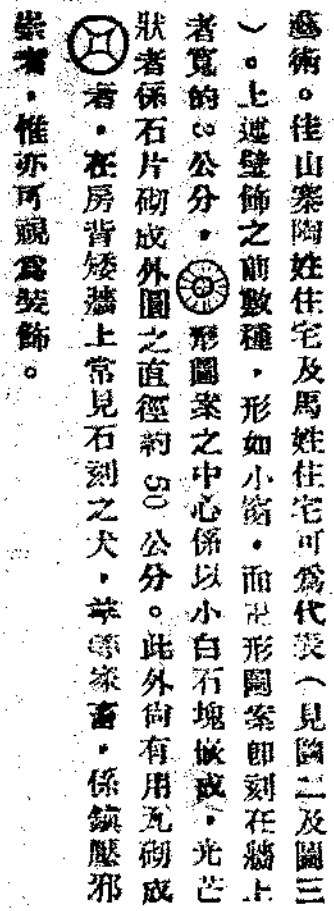 藝術。佳山寨陶姓住宅及馬姓住宅可爲代表（見圖二及圖三
）。上述壁飾之前數種，形如小窗，而卍形圖案即刻在牆上
者寬約8公分，形圖案之中心係以小白石塊嵌成，光芒
狀者係石片砌成外圓之直徑約50公分。此外尙有用瓦砌成
者，在房背矮牆上常見石刻之犬，羊等家畜，係鎮壓邪
祟者，惟亦可視爲裝飾。